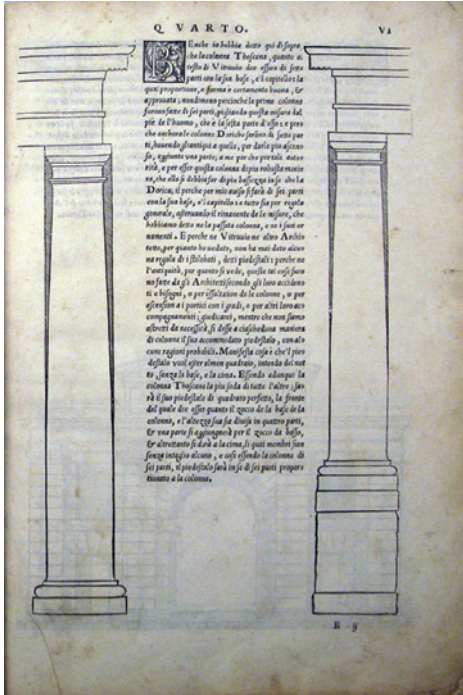 Q VARTO. VI
BEnche io habbia detto quì di sopra
che la colonna Thoscana, quanto al
testo di Vitruuio dee esser di sette
parti con la sua base, e'l capitello: la
qual proportione, e forma è certamente buona, &
approuata; nondimeno percioche le prime colonne
furon fatte di sei parti, pigliando questa misura dal
piè de l'huomo, che è la sesta parte d'esso: e per-
che anchora le colonne Doriche sono di sette par
ti, hauendo gli antiqui a quelle, per darle più ascen-
so, aggiunto una parte; a me par che per tali auto
rità, e per esser questa colonna di più robusta manie
ra, che ella si debbia far di più bassezza in se che la
Dorica; il perche per mio auiso si farà di sei parti
con la sua base, e'l capitello: e tutto sia per regola
generale, osseruando il rimanente de le misure, che
habbiamo detto ne la passata colonna, e ne i suoi or
namenti. E perche ne Vitruuio ne altro Archi
tetto, per quanto ho ueduto, non ha mai dato alcu
na regola de i stilobati, detti piedestali: perche ne
l'antiquità, per quanto si uede, queste tai cose furo
no fatte da gli Architetti secondo gli loro acciden
ti e bisogni, o per essaltation de le colonne, o per
ascension a i portici con i gradi, o per altri loro ac-
compagnamenti; giudicarei, mentre che non siamo
astretti da necessità, si desse a ciascheduna maniera
di colonne il suo accommodato piedestalo, con al-
cune ragioni probabili. Manifesta cosa è che'l pie
destalo vuol esser almen quadrato, intendo del net
to, senza la base, e la cima. Essendo adunque la
colonna Thoscana la più soda di tutte l'altre; sa-
rà il suo piedestalo di quadrato perfetto, la fronte
del quale dee esser quanto il zocco de la base de la
colonna, e l'altezza sua sia diuisa in quattro parti,
& una parte si aggiungerà per il zocco da basso,
& altrettanto si darà a la cima, li quai membri sian
senza intaglio alcuno, e così essendo la colonna di
sei parti, il piedestalo sarà in se di sei parti propor
tionato a la colonna.